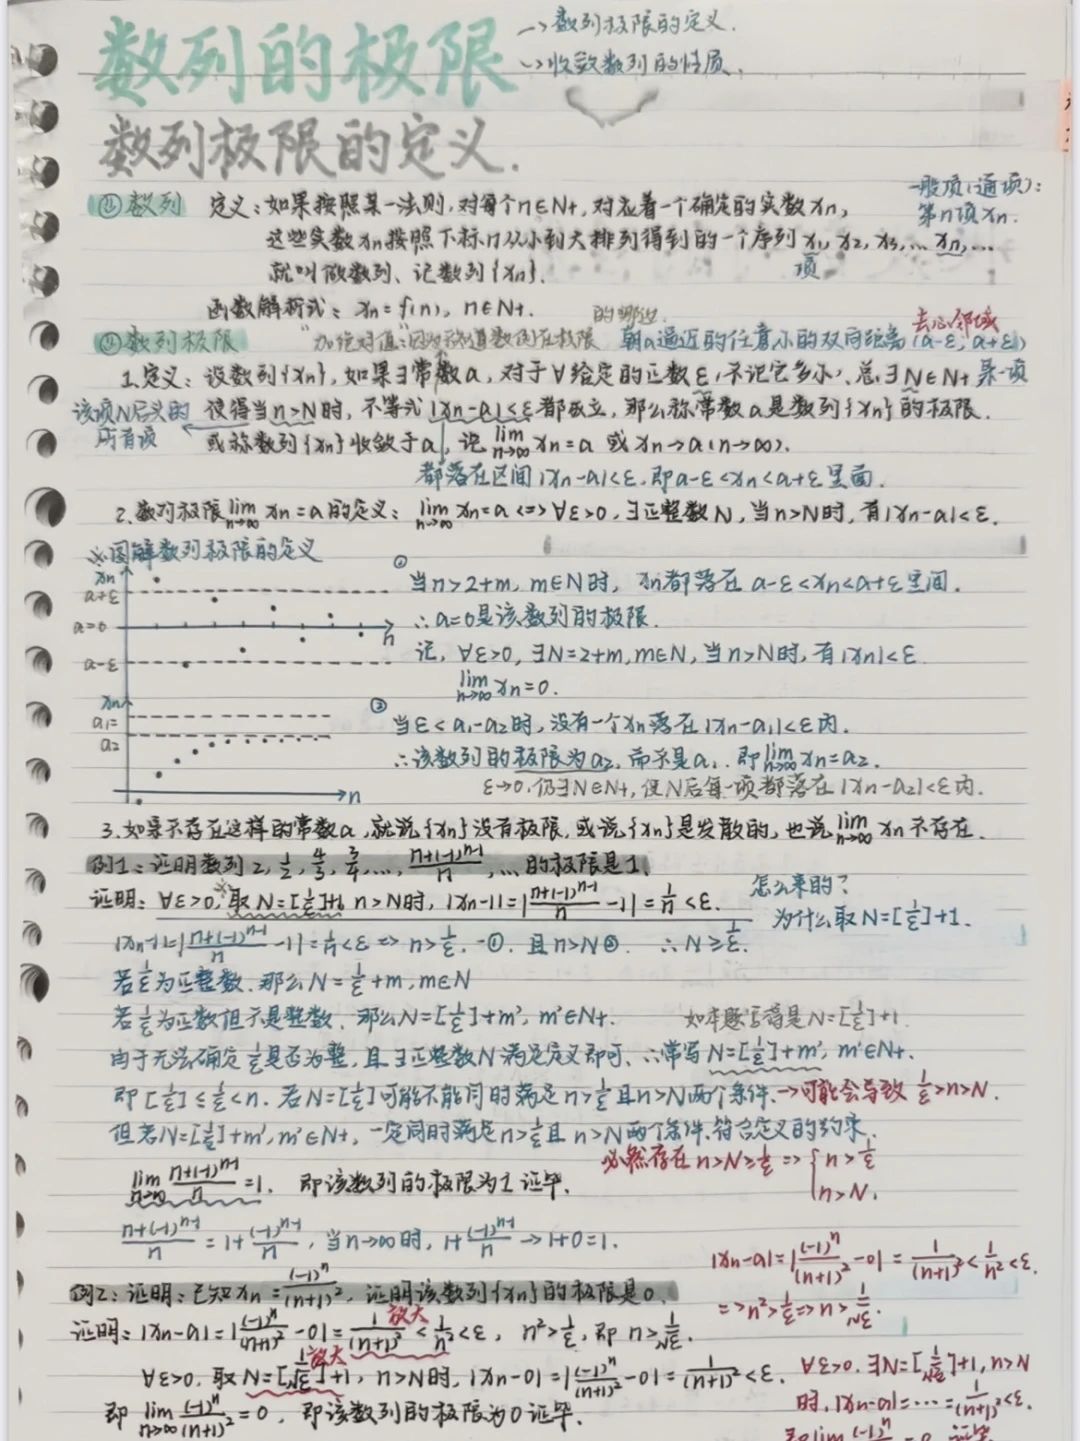 数列的极限
→数列极限的定义.
→收敛数列的性质.
数列极限的定义.
一般项(通项):
第n项xn.
数列 定义:如果按照某一法则,对每个n∈N+,对应着一个确定的实数xn,
这些实数xn按照下标n从小到大排列得到的一个序列x1,x2,x3,…xn,…
项
就叫做数列、记数列{xn}.
函数解析式:xn=f(n), n∈N+.
数列极限
朝a逼近的任意小的双向距离(a-ε,a+ε)
去心邻域
1.定义:设数列{xn},如果∃常数a,对于∀给定的正数ε(不论它多小)、总∃N∈N+ 某一项
该项N后头的
所有项
使得当n>N时,不等式|xn-a|<ε都成立,那么称常数a是数列{xn}的极限.
或称数列{xn}收敛于a,记lim n→∞ xn=a 或xn→a(n→∞).
都落在区间|xn-a|<ε,即a-ε<xn<a+ε里面.
2.数列极限lim n→∞ xn=a的定义:lim n→∞ xn=a<=>∀ε>0,∃正整数N,当n>N时,有|xn-a|<ε.
※图解数列极限的定义
xn
a+ε
a=0
n
a-ε
① 当n>2+m,m∈N时, xn都落在a-ε<xn<a+ε里间.
∴a=0是该数列的极限.
记,∀ε>0,∃N=2+m,m∈N,当n>N时,有|xn|<ε
lim n→∞ xn=0.
xn
a1=
a2
n
② 当ε<a1-a2时,没有一个xn落在|xn-a1|<ε内.
∴该数列的极限为a2,而不是a1.即lim n→∞ xn=a2.
ε→0,仍∃N∈N+,使N后每一项都落在|xn-a2|<ε内.
3.如果不存在这样的常数a,就说{xn}没有极限,或说{xn}是发散的,也说lim n→∞ xn不存在.
例1:证明数列2,1/2,4/3,3/4,…,(n+(-1)^(n-1))/n,…的极限是1.
证明:∀ε>0,取N=[1/ε]+1, n>N时,|xn-1|=|(n+(-1)^(n-1))/n-1|=1/n<ε.
怎么来的?
为什么取N=[1/ε]+1.
|xn-1|=|(n+(-1)^(n-1))/n-1|=1/n<ε=>n>1/ε.-①.且n>N②. ∴N≥1/ε.
若1/ε为正整数.那么N=1/ε+m,m∈N
若1/ε为正数但不是整数、那么N=[1/ε]+m',m'∈N+.
如本题写得是N=[1/ε]+1.
由于无法确定1/ε是否为整,且∃正整数N满足定义即可、∴常写N=[1/ε]+m',m'∈N+.
即[1/ε]≤1/ε<n.若N=[1/ε]可能不能同时满足n>1/ε且n>N两个条件.→可能会导致1/ε>n>N.
但若N=[1/ε]+m',m'∈N+,一定同时满足n>1/ε且n>N两个条件.符合定义的约束.
必然存在n>N≥1/ε=>{n>1/ε
n>N.
lim n→∞ (n+(-1)^(n-1))/n=1. 即该数列的极限为1证毕.
(n+(-1)^(n-1))/n=1+(-1)^(n-1)/n,当n→∞时,1+(-1)^(n-1)/n→1+0=1.
例2:证明:已知xn=(-1)^n/(n+1)^2,证明该数列{xn}的极限是0.
放大
证明:|xn-a|=|(-1)^n/(n+1)^2-0|=1/(n+1)^2<1/n^2<ε, n^2>1/ε,即n>1/√ε.
放大
∀ε>0.取N=[1/√ε]+1,n>N时,|xn-0|=|(-1)^n/(n+1)^2-0|=1/(n+1)^2<ε.
即lim n→∞ (-1)^n/(n+1)^2=0,即该数列的极限为0证毕.
|xn-a|=|(-1)^n/(n+1)^2-0|=1/(n+1)^2<1/n^2<ε.
=>n^2>1/ε=>n>1/√ε.
∀ε>0.∃N=[1/√ε]+1,n>N
时,|xn-a|=…=1/(n+1)^2<ε.